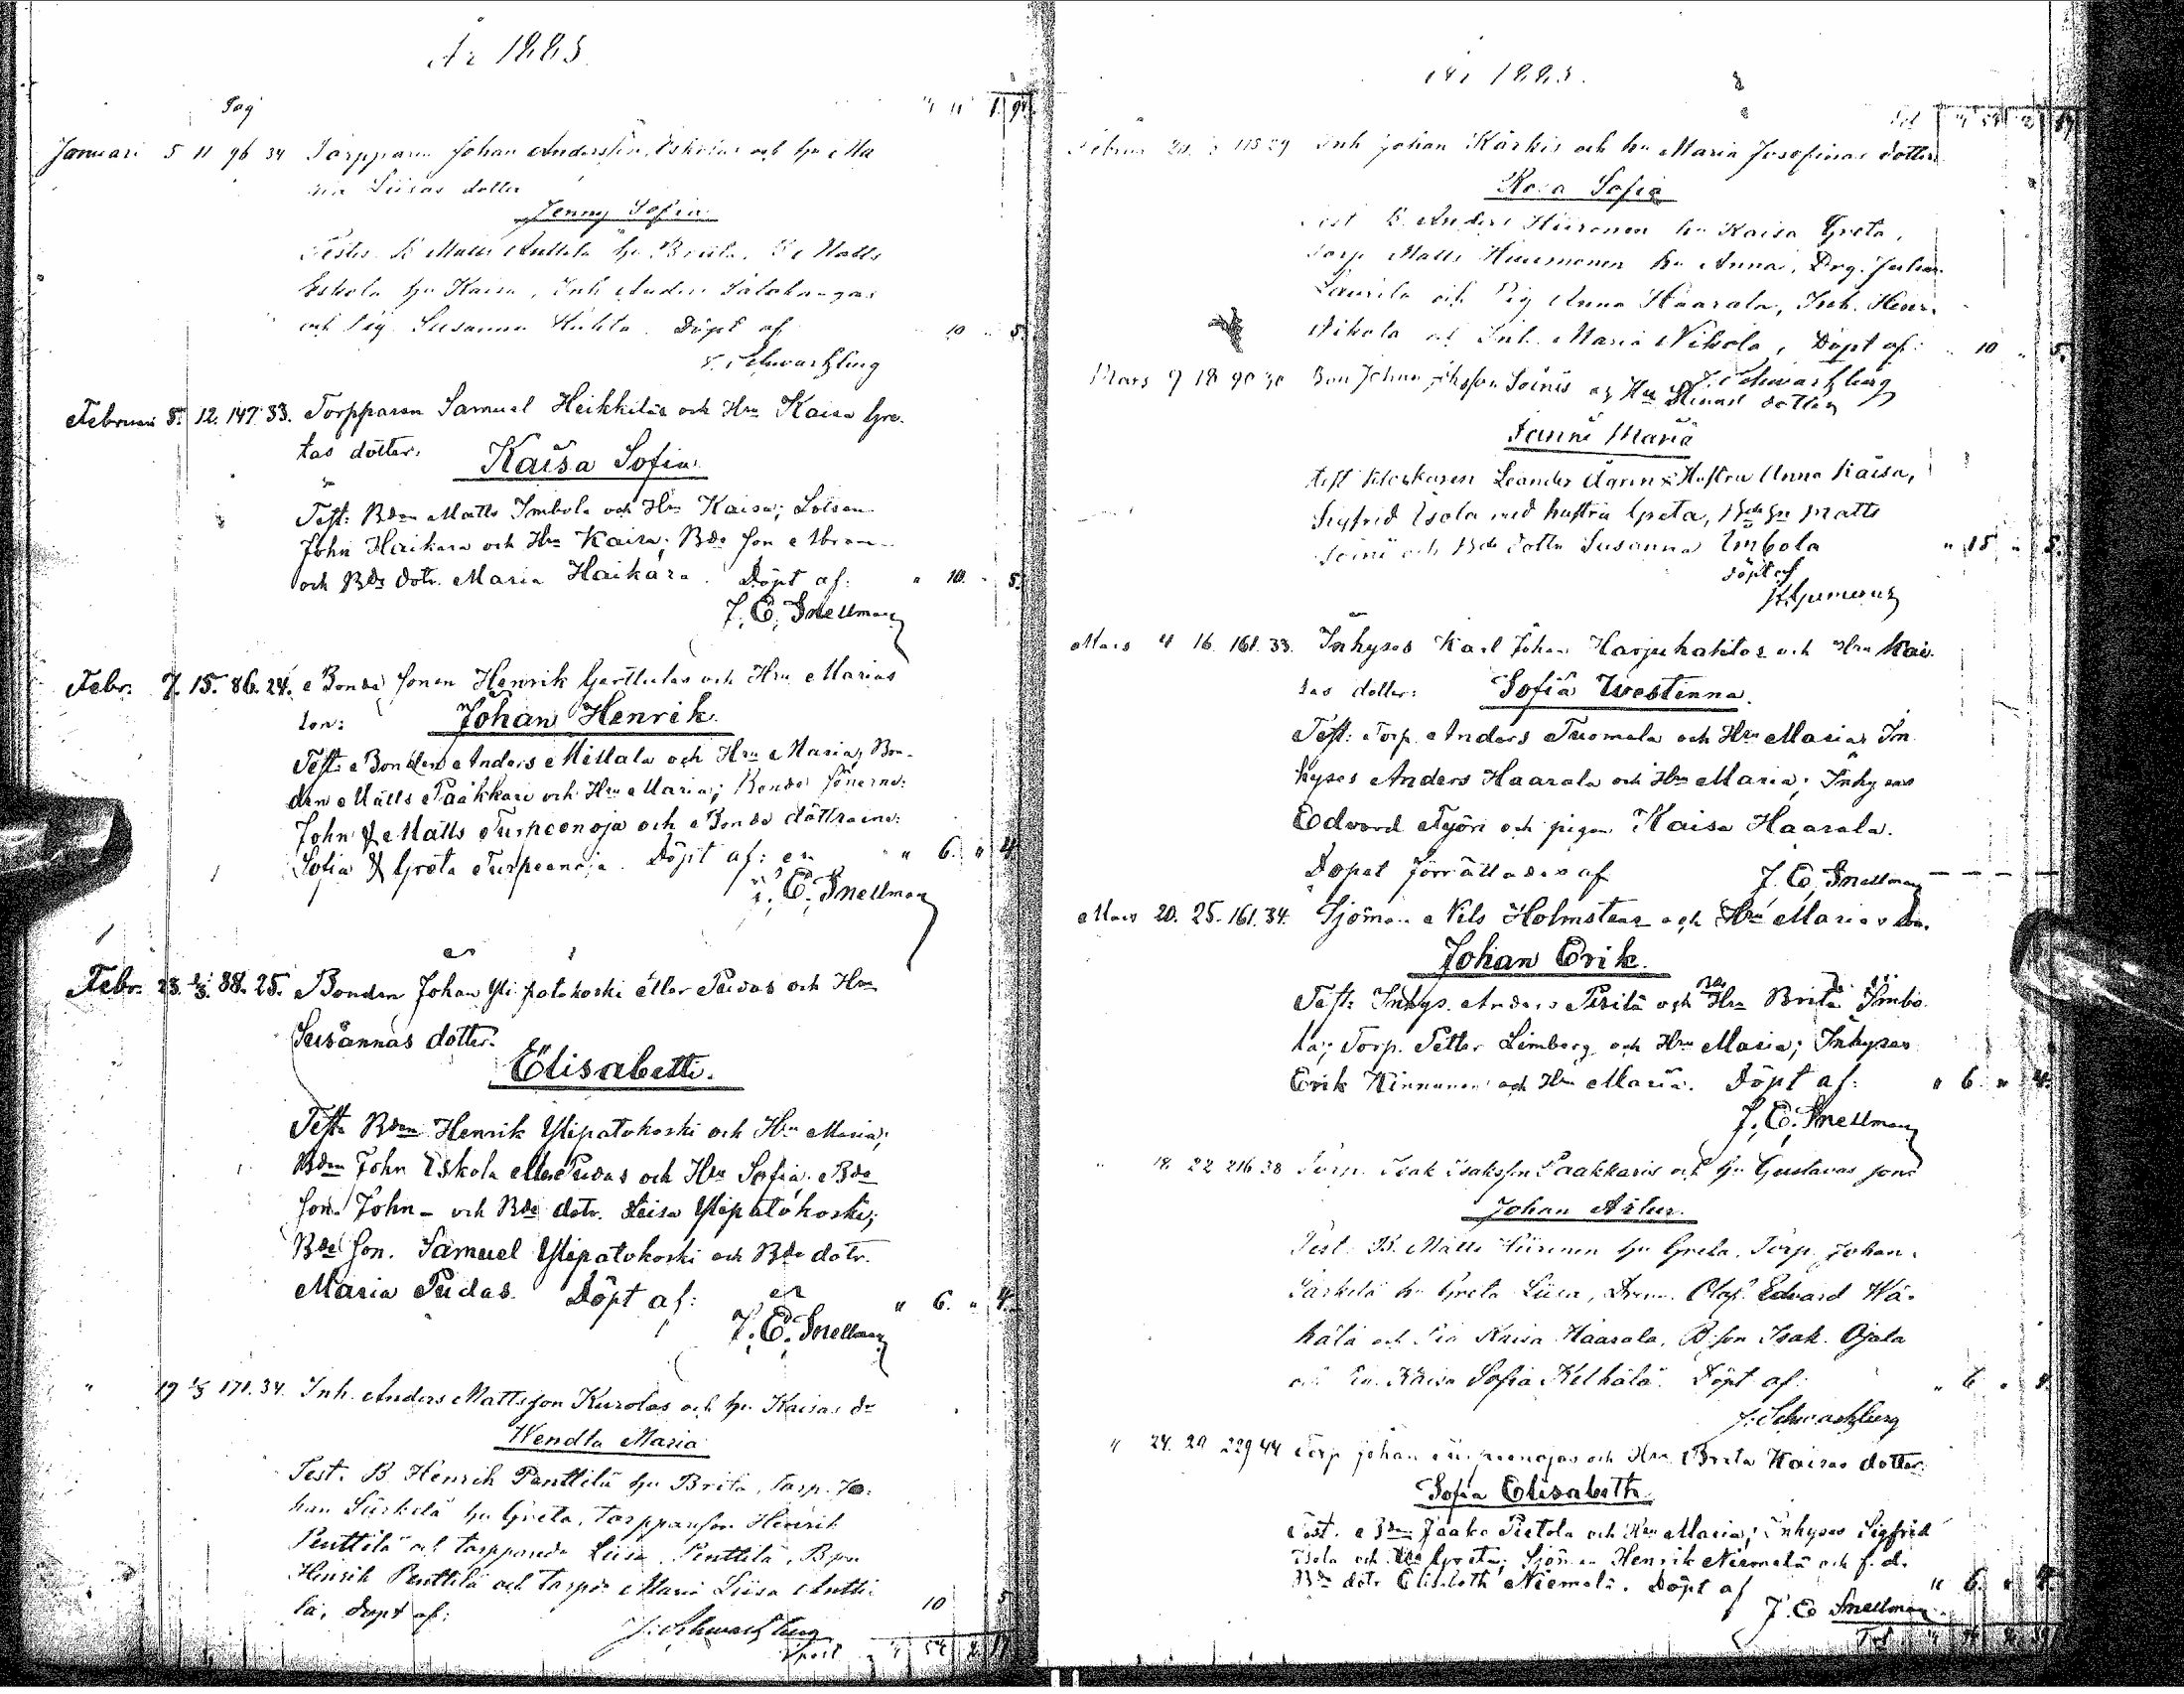 År 1885.
Dag
Januari 5 11 96 34 Torpparen Johan Andersson Eskolas och hu Ma
ria Liisas dotter
Jenny Sofia
Testes B Matts Anttila hu Briita, B Matts
Eskola hu Kaisa, Inh Anders Salokangas
och Pig. Susanna Huhta. Döpt af 10 5.
J. Schwartzberg
Februari 5. 12. 147. 33. Torpparen Samuel Heikkiläs och Hru Kaisa Gre-
tas dotter. Kaisa Sofia.
Test: Bden Matts Imbola och Hru Kaisa;
John Haikara och Hru Kaisa; Bde son Abram
och Bde dotr. Maria Haikara. Döpt af: " 10. " 5.
J. E. Snellman
Febr. 7. 15. 86. 24. Bonde sonen Henrik och Hru Marias
son: Johan Henrik.
Test: Bonden Anders Mettala och Hru Maria; Bon-
den Matts Paakkari och Hru Maria; Bonde sönerne:
John & Matts Turpeenoja och Bonde döttrarne:
Sofia & Greta Turpeenoja. Döpt af: " 6. " 4.
J. E. Snellman
Febr. 23. 1/3. 88. 25. Bonden Johan Ylipatokoski eller Pudas och Hru
Susannas dotter.
Elisabeth.
Test: Bden Henrik Ylipatokoski och Hru Maria;
Bden John Eskola eller Pudas och Hru Sofia. Bde
son. John – och Bde dotr. Liisa Ylipatokoski;
Bde son. Samuel Ylipatokoski och Bde dotr.
Maria Pudas. Döpt af: " 6. " 4.
J. E. Snellman
" 19 1/3 171. 34. Inh. Anders Mattsson Kurolas och hu Kaisas dr
Wendla Maria
Test. B. Henrik Penttilä hu Brita, Torp. Jo-
han Särkelä hu Greta, Torpparson Henrik
Penttilä och torpparedr Liisa Penttilä, Bson
Henrik Penttilä och torpdr Maria Liisa Antti-
la, Döpt af: 10 5
J. Schwartzberg
År 1885.
Februar 115 29 Inh Johan Kärkis och hu Maria Josefinas dotter
Rosa Sofia
Test B. Anders Hiironen hu Kaisa Greta,
Torp Matts hu Anna, Drg. Johan
Laurila och Pig Anna Haarala, Inh. Henr.
Nikola och Inh. Maria Nikola, Döpt af: " 10 " 5.
J. Schwartzberg
Mars 9 18 90 30 Bon Johan Johsson Soinis och Hu dotter
Fanni Maria
Test Leander Ågren & Hustru Anna Kaisa,
Sigfrid Isola med hustru Greta, Matts
Soini och Bde dotter Susanna Imbola " 15 " 5.
döpt af
Mars 4 16. 161. 33. Inhyses Karl Johan Harjuhahtos och Hru Kai-
sas dotter: Sofia Westenna.
Test: Torp. Anders Tuomala och Hru Maria; In-
hyses Anders Haarala och Hru Maria; Inhyses
Edvard Nyön och pigan Kaisa Haarala.
Dopet förrättades af J. E. Snellman
Mars 20. 25. 161. 34. Sjöman Nils Holmstens och Hru Marias son.
Johan Erik.
Test: Inhys. Anders Perilä och Hru Brita Imbo-
la; Torp. Petter Limberg och Hru Maria; Inhyses
Erik Kinnunen och Hru Maria. Döpt af: " 6. " 4.
J. E. Snellman
" 18. 22 216 38 Torp. Isak Isaksson Paakkaris och hu Gustavas son
Johan Artur.
Test. B. Matts Hiironen hu Greta, Torp. Johan
Särkelä hu Greta Liisa, Olof Edvard Wä-
hälä och Pig Kaisa Haarala, B.son Isak Ojala
och Kaisa Sofia Kelhälä. Döpt af: " 6 " 4.
J. Schwartzberg
" 24. 29 229 44 Torp Johan Turpeenojas och Hru Brita Kaisas dotter.
Sofia Elisabeth.
Test. Bden Jaako Pietola och Hru Maria; Inhyses Sigfrid
Isola och Hru Greta; Sjöman Henrik Niemelä och f. d.
Bde dotr Elisabeth Niemelä. Döpt af " 6. " 4.
J. E. Snellman